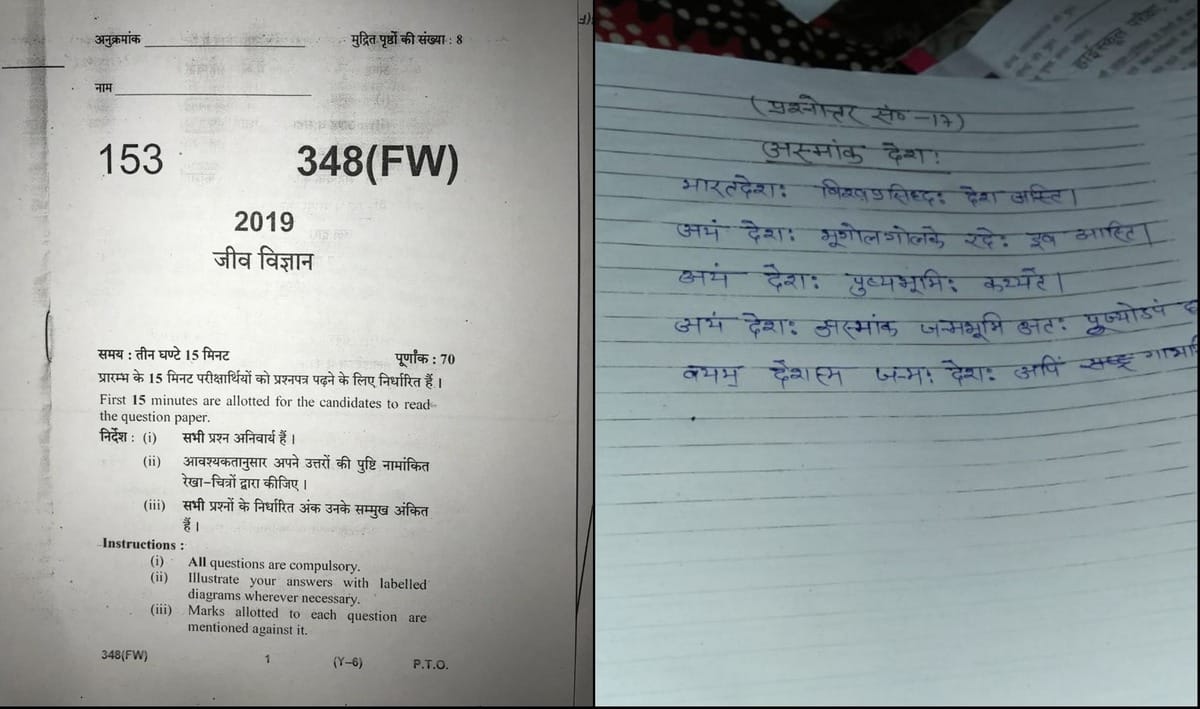 अनुक्रमांक
मुद्रित पृष्ठों की संख्या : 8
नाम
153
348(FW)
2019
जीव विज्ञान
समय : तीन घण्टे 15 मिनट
पूर्णांक : 70
प्रारम्भ के 15 मिनट परीक्षार्थियों को प्रश्नपत्र पढ़ने के लिए निर्धारित हैं ।
First 15 minutes are allotted for the candidates to read
the question paper.
निर्देश : (i) सभी प्रश्न अनिवार्य हैं ।
(ii) आवश्यकतानुसार अपने उत्तरों की पुष्टि नामांकित
रेखा-चित्रों द्वारा कीजिए ।
(iii) सभी प्रश्नों के निर्धारित अंक उनके सम्मुख अंकित
हैं ।
Instructions :
(i) All questions are compulsory.
(ii) Illustrate your answers with labelled
diagrams wherever necessary.
(iii) Marks allotted to each question are
mentioned against it.
348(FW)
1
(Y-6)
P.T.O.
हाईस्कूल परीक्षा
(प्रश्नोत्तर सं० -17)
अस्मांक देशः
भारतदेशः विश्वप्रसिध्दः देश अस्ति।
अयं देशः भूगोलगोलके इव
अयं देशः पुण्यभूमिः कथ्यते।
अयं देशः अस्मांक जन्मभूमि अतः
वयम् देशः अपि